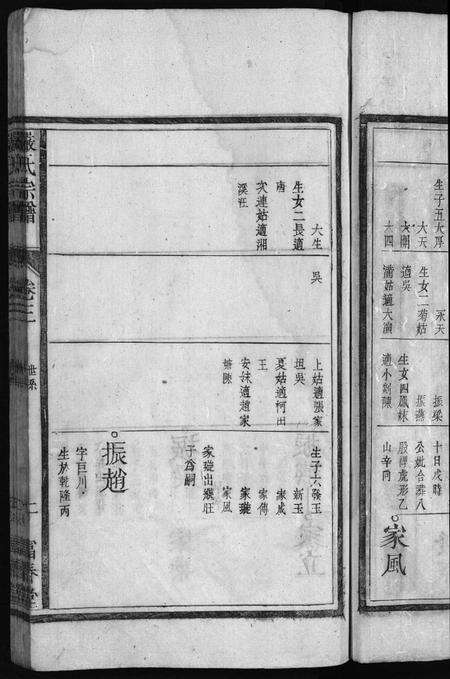 家風
生子五大厚
大天
大開
大四
永天
生女二菊姑
適吳
滿姑適大演
振梁
振燕
生女四鳳妹
適小劉陳
十日戌時
公妣合葬八
股禪虎形乙
山辛向
大生
生女二長適
唐
次連姑適湘
溪汪
吳
上姑適張家
坦吳
夏姑適柯田
王
安妹適趙家
塘陳
生子六發玉
新玉
家成
家傳
家璇
家風
家璇出繼旺
子為嗣
振趙
字巨川
生於乾隆丙
嚴氏宗譜
卷三
世系
二
富春堂